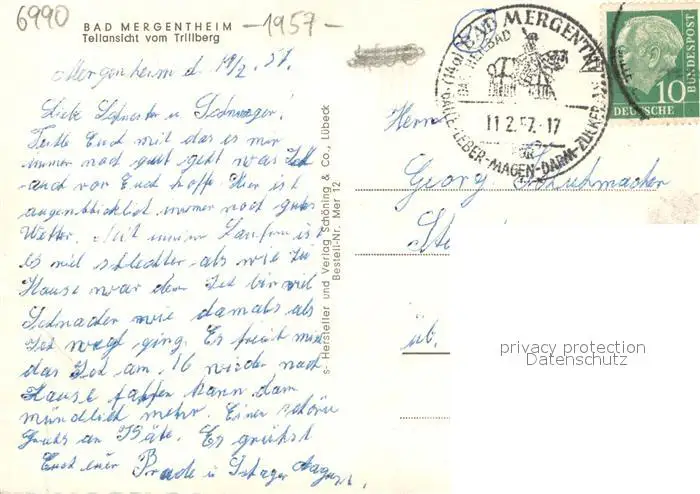 6990
BAD MERGENTHEIM
Teilansicht vom Trillberg
-1957-
Mergenheim d. 11/2. 57.
Liebe Schwester u Schwager!
Teile Euch mit das es mir
immer noch gut geht was Ich
auch von Euch hoffe Hier ist
augenblicklich immer noch gutes
Wetter. Mit meinem Laufen ist
es viel schlechter als wie zu
Hause war denn Ich bin viel
Schwacher wie damals als
Ich wegl ging. Es freit mich
das Ich am 16 wieder nach
Hause fahren kann dann
mündlich mehr. Einen schönen
Gruß an Käte. Es grüßt
Euch euer Bruder u Schager August.
s- Hersteller und Verlag Schöning & Co., Lübeck
Bestell-Nr. Mer 12
(14a) BAD MERGENTHEIM
DAS HEILBAD
11.2.57.-17
FÜR
GALLE-LEBER-MAGEN-DARM-ZUCKER
10
DEUTSCHE
BUNDESPOST
Herrn
Georg Schuhmacher
üb.
privacy protection
Datenschutz